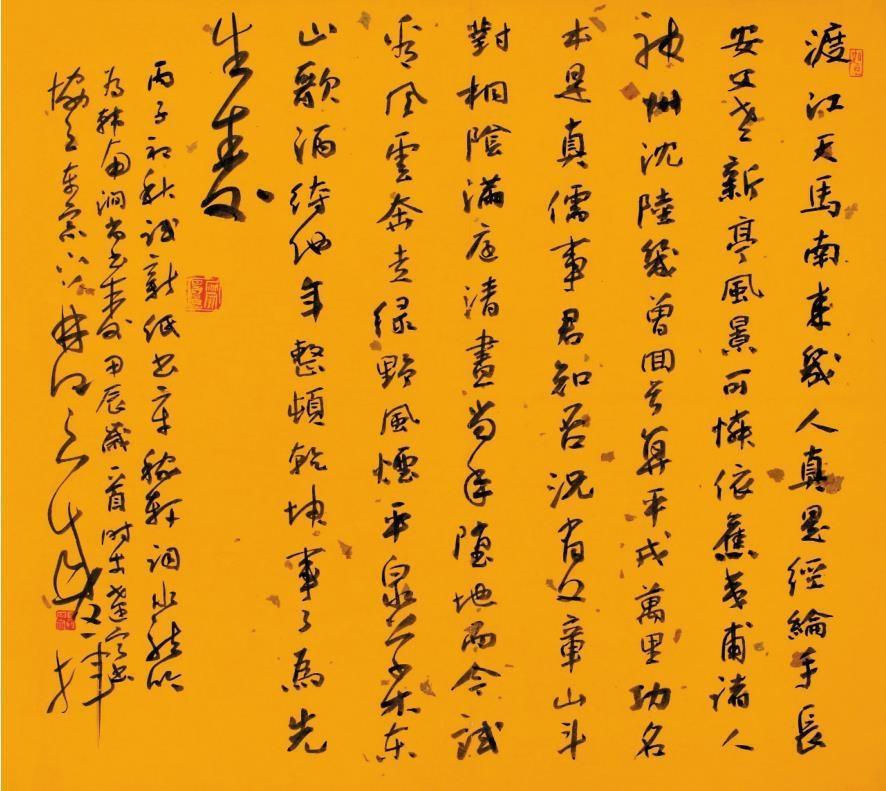 渡江天馬南来幾人真是經綸手長
安父老新亭風景可憐依舊夷甫諸人
神州沈陸幾曾回首算平戎萬里功名
本是真儒事君知否況有文章山斗
對桐陰滿庭清晝尚年墮地而今試
看風雲奔走緑野風煙平泉草木东
山歌酒待他年整頓乾坤事了為先
生壽
丙子初秋試新纸书辛稼軒詞水龍吟
為韩南澗尚书寿甲辰歲一首时